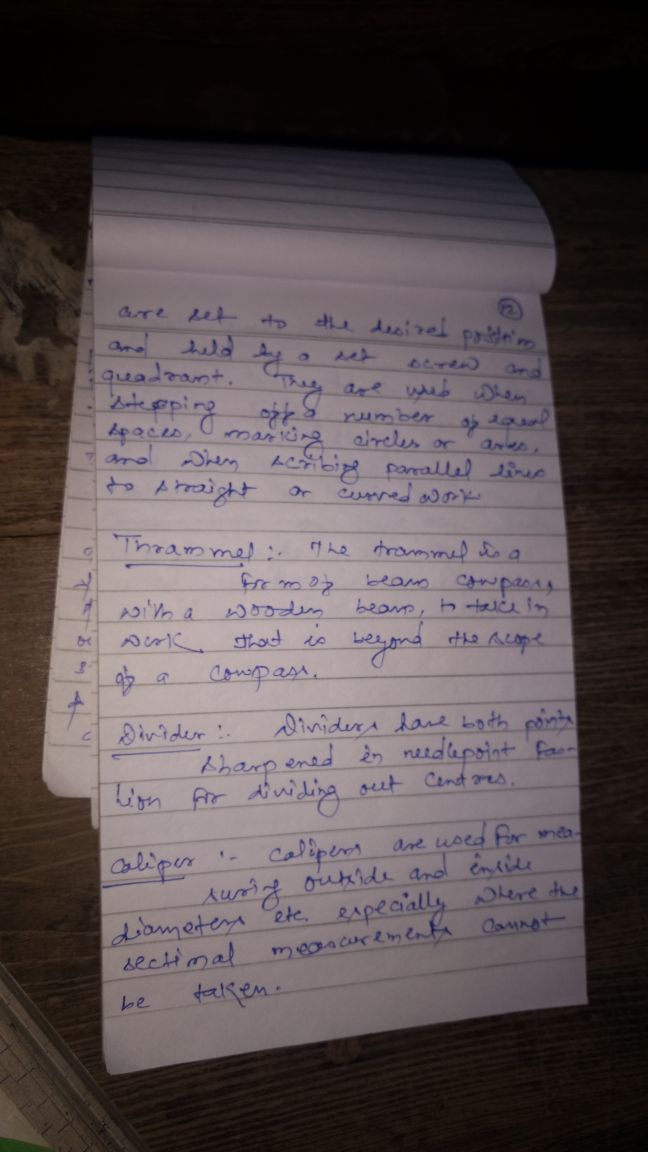 12
are set to the desired position
and held by a set screw and
quadrant. They are used when
stepping off a number of equal
spaces, marking circles or arcs,
and when scribing parallel lines
to straight or curved work
Thrammel :- The trammel is a
form of beam compass,
with a wooden beam, to take in
work that is beyond the scope
of a compass.
Divider :- Dividers have both points
sharpened in needlepoint fas-
hion for dividing out centres.
Caliper :- Calipers are used for mea-
suring outside and inside
diameters etc. especially where the
sectional measurements cannot
be taken.